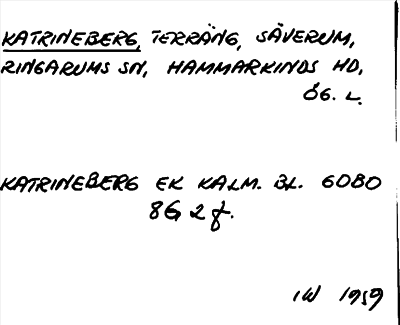 KATRINEBERG, TERRÄNG, SÄVERUM,
RINGARUMS SN, HAMMARKINDS HD,
ÖG. L.
KATRINEBERG EK KALM. BL. 6080
8G 2 f.
IW 1959